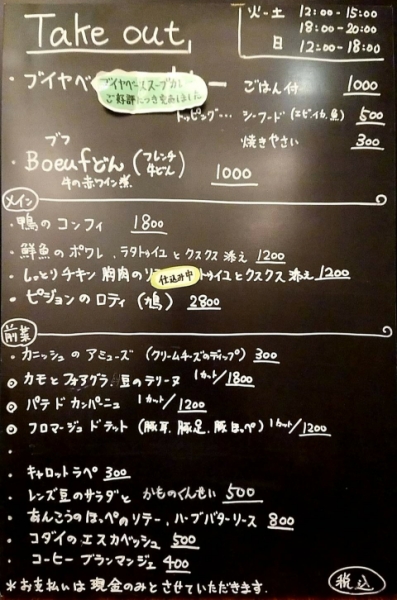 Take out
火-土 12:00-15:00
18:00-20:00
日 12:00-18:00
・ブイヤベ ー ごはん付 1000
ブイヤベーススープカレー
ご好評につき完売しました
トッピング… シーフード(エビ、イカ、魚) 500
焼きやさい 300
ブフ
・Boeufどん (フレンチ牛どん) 1000
牛の赤ワイン煮
メイン
・鴨のコンフィ 1800
・鮮魚のポワレ、ラタトゥイユとクスクス添え 1200
・しっとりチキン胸肉のソ トゥイユとクスクス添え 1200
仕込み中
・ピジョンのロティ (鳩) 2800
前菜
・カニッシュのアミューズ (クリームチーズのディップ) 300
◎カモとフォアグラ、豆のテリーヌ 1カット/1800
◎パテドカンパーニュ 1カット/1200
◎フロマージュドテット (豚耳、豚足、豚ほっぺ) 1カット/1200
・
・キャロットラペ 300
・レンズ豆のサラダと かものくんせい 500
・あんこうのほっぺのソテー、ハーブバターソース 800
・コダイのエスカベッシュ 500
・コーヒーブランマンジェ 400
＊お支払いは現金のみとさせていただきます.
税込